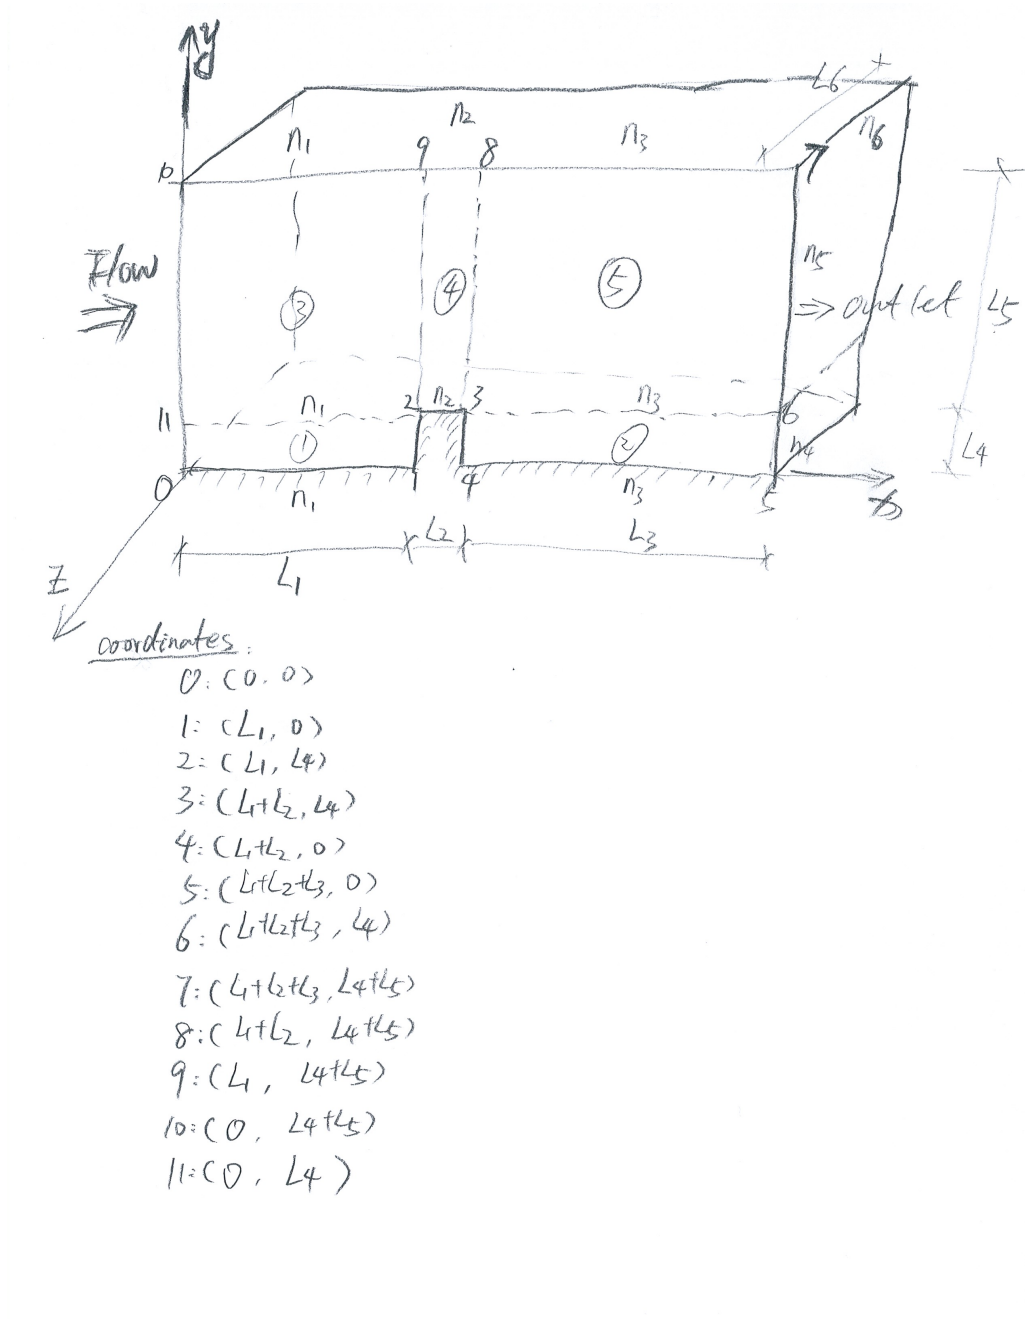 y
L6
n2
n6
n1
9
8
n3
10
7
n5
Flow
⇒
3
4
5
⇒ outlet
L5
n1
2
n2
3
n3
6
11
1
2
n4
L4
0
n1
4
n3
5
x
L2
L3
L1
Z
coordinates:
0: (0.0)
1: (L1, 0)
2: (L1, L4)
3: (L1+L2, L4)
4: (L1+L2, 0)
5: (L1+L2+L3, 0)
6: (L1+L2+L3, L4)
7: (L1+L2+L3, L4+L5)
8: (L1+L2, L4+L5)
9: (L1, L4+L5)
10: (0, L4+L5)
11: (0, L4)